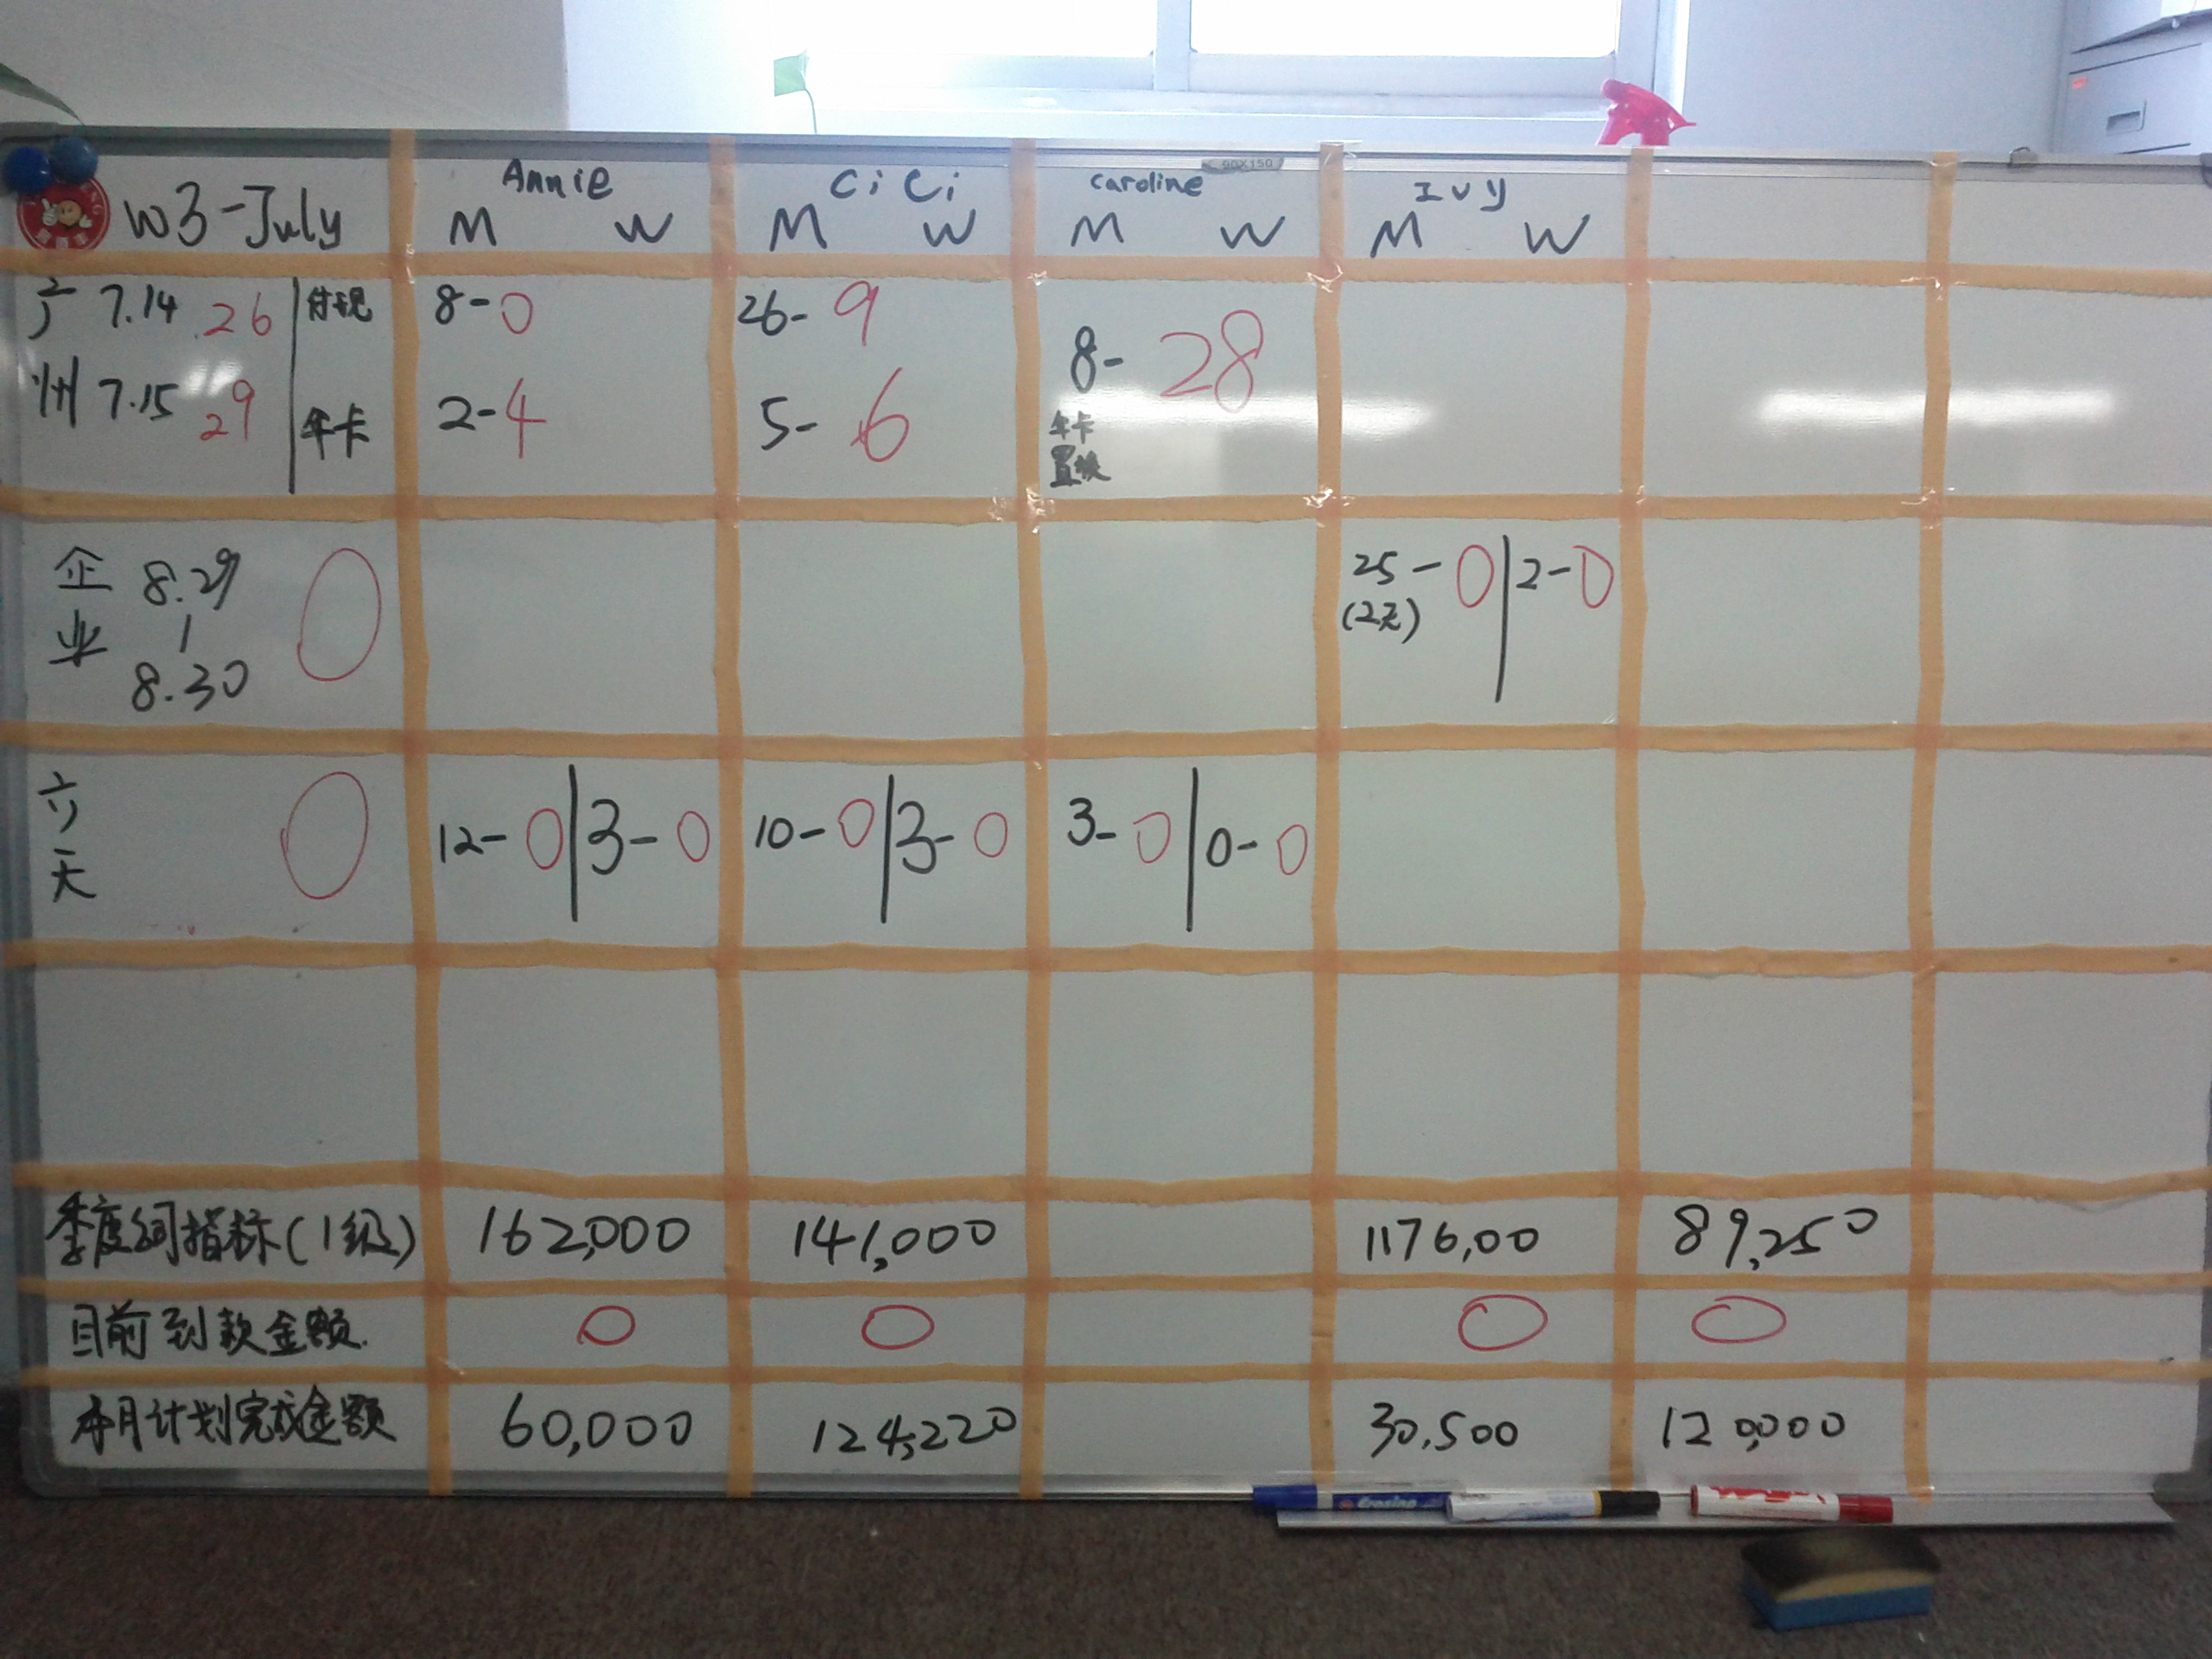 W3-July
Annie
M W
CiCi
M W
Caroline
M W
Ivy
M W
90X150
广 7.14 26 付现 8-0 26-9
州 7.15 29 年卡 2-4 5-6
8-28
年卡
置换
企 8.29 0
业 |
8.30
25-0 | 2-0
(2天)
立 0 12-0 | 3-0 10-0 | 3-0 3-0 | 0-0
天
季度词指标(1级) 162,000 141,000 1176,00 89,250
目前到款金额. 0 0 0 0
本月计划完成金额 60,000 124,220 30,500 120,000